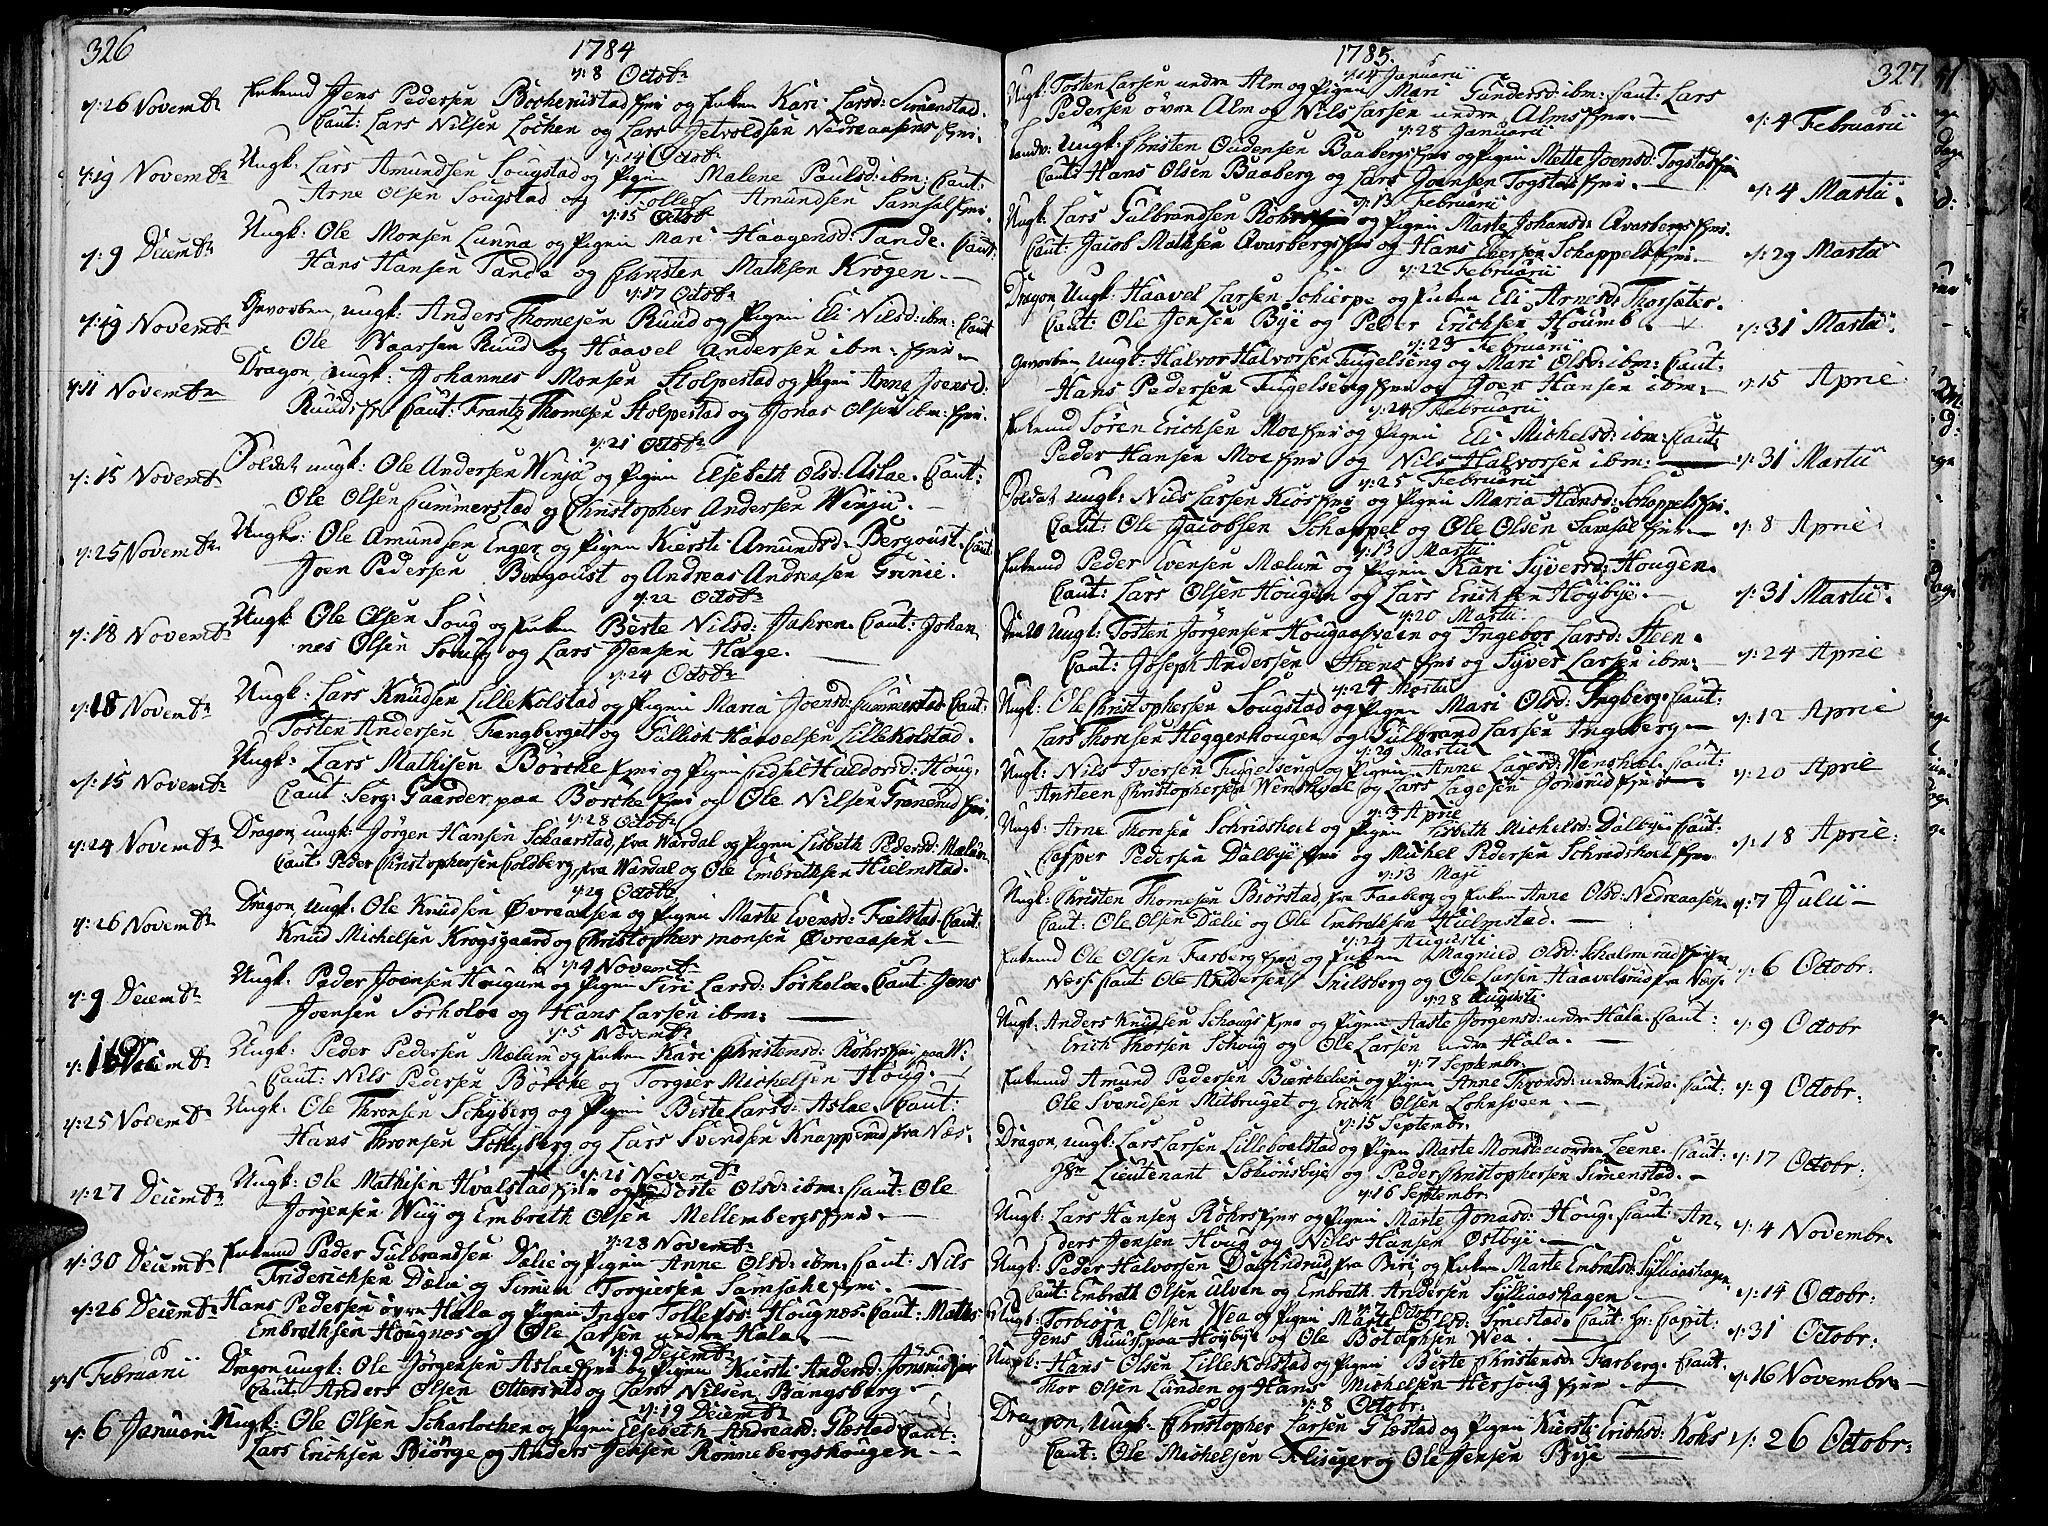 326
1784
d: 8 Octobr
d: 26 Novembr Enkemd Jens Pedersen Borkenustad Eyer og Enken Kari Larsd: Simenstad.
Caut: Lars Nilsen Løchen og Lars Nedreaasens Eyer.
d: 14 Octobr
d: 19 Novembr Ungk: Lars Amundsen Sougstad og Pigen Malene Paulsd: ibm: Caut:
Arne Olsen Sougstad og Tollef Amundsen Samsal Eyer.
d: 15 Octobr
d: 9 Decembr Ungk: Ole Monsen Lunna og Pigen Mari Haagensd: Tande. Caut:
Hans Hansen Tande og Christen Mathsen Krogen.
d: 17 Octobr
d: 19 Novembr Gevorben, ungk: Anders Thomesen Ruud og Pigen Eli Nilsd: ibm: Caut
Ole Ruud og Haavel Andersen ibm: Eyer
d: 11 Novembr Dragon, ungk: Johannes Monsen Stolpestad og Pigen Anne Joensd:
Ruuds Er Caut: Frantz Thomesen Stolpestad og Jonas Olsen ibm: Eyer.
d: 21 Octobr
d: 15 Novembr Soldat ungk: Ole Andersen Winju og Pigen Elsebeth Olsd: Aslae. Caut:
Ole Olsen Cummerstad og Christopher Andersen Winju.
d: 25 Novembr Ungk: Ole Amundsen Enger og Pigen Kiersti Amundsd: Bergoust. Caut:
Joen Pedersen Bergoust og Andreas Andreasen Grinie.
d: 22 Octobr
d: 18 Novembr Ungk: Ole Olsen Soug og Enken Berte Nilsd: Jahren. Caut: Johan
nes Olsen Soug og Lars Jensen Hage.
d: 24 Octobr
d: 18 Novembr Ungk: Lars Knudsen Lillekolstad og Pigen Maria Joensd: Cummerstad Caut:
Tosten Andersen Fangberget og Gullich Haavelsen Lillekolstad.
d: 15 Novembr Ungk: Lars Mathisen Børche Eyer og Pigen Sidsel Haldorsd: Houg.
Caut: Serg: Gaarder paa Børche Eyer og Ole Nilsen Granerud Eyer.
d: 28 Octobr
d: 24 Novembr Dragon, ungk: Jørgen Hansen Schaarstad, fra Wardal og Pigen Lisbeth Pedersd: Malum.
Caut: Peder Christophersen Coldberg, fra Wardal og Ole Embrethsen Hielmstad.
d: 29 Octobr
d: 26 Novembr Dragon ungk: Ole Knudsen Øvreaasen og Pigen Marte Evensd: Fielstad. Caut:
Knud Michelsen Krogsgaard og Christopher Monsen Øvreaasen.
d: 4 Novembr
d: 9 Decembr Ungk: Peder Joensen Hougum og Pigen Siri Larsd: Sørholoe. Caut: Jens
Joensen Sørholoe og Hans Larsen ibm:
d: 5 Novembr
d: 16 Decembr Ungk: Peder Pedersen Mælum og Enken Kari Christensd: Rohrs Eyer paa W:
Caut: Nils Pedersen Børche og Torgier Michelsen Houg.
d: 25 Novembr Ungk: Ole Thronsen Schyberg og Pigen Berte Larsd: Aslae. Caut:
Hans Thronsen Schyberg og Lars Svendsen Knapperud fra Næs.
d: 21 Novembr
d: 27 Decembr Ungk: Ole Mathisen Hvalstad Eyer og Berte Olsd: ibm: Caut: Ole
Jørgensen Wiig og Embreth Olsen Mellembergs Eyer.
d: 28 Novembr
d: 30 Decembr Enkemd Peder Gulbrandsen Dælie og Pigen Anne Olsd: ibm: Caut: Nils
Friderichsen Dælie og Simen Torgiersen Eyer.
d: 26 Decembr Hans Pedersen øvre Hala og Pigen Inger Tollefsd: Hougnæs. Caut: Maths
Embrethsen Hougnæs og Ole Larsen nedre Hala.
d: 9 Decembr
d: 6 Februarii Dragon, ungk: Ole Jørgensen Aslae Eyer og Pigen Kiersti Andersd: Jønsrud Eyer
Caut: Anders Olsen Ottersrud og Lars Nilsen Bangsberg
d: 19 Decembr
d: 6 Januarii Ungk: Ole Olsen Scharlochen og Pigen Elsebeth Andreasd: Glæstad Caut:
Lars Erichsen Biørge og Anders Jensen Rønnebergshougen
327
1785.
d: 14 Januarii
Ungk: Tosten Larsen nedre Alm og Pigen Mari Gundersd: ibm: Caut: Lars
Pedersen øvre Alm og Nils Larsen nedre Alms Eyer. d: 4 Februarii
d: 28 Januarii
Ungk: Christen Oudensen Baabergs Eyer og Pigen Mette Joensd: Togstad Eyer
Caut: Hans Olsen Baaberg og Lars Joensen Togstad Eyer. d: 4 Martii.
d: 13 Februarii
Ungk: Lars Gulbrandsen Rohrs Eyer og Pigen Marte Johansd: Qvarbergs Eyer.
Caut: Jacob Mathsen Qvarbergs Eyer og Hans Schappels Eyer. d: 29 Martii
d: 22 Februarii
Dragon Ungk: Haavel Larsen Schierpe og Enken Eli Arnesd: Thorsæter.
Caut: Ole Jensen Bye og Peder Erichsen Houmb. d: 31 Martii
d: 23 Februarii
Gevorben Ungk: Halvor Halvorsen Fugelseng og Mari Olsd: ibm: Caut:
Hans Pedersen Fugelseng Eyer og Joen Hansen ibm: d: 15 April
d: 24 Februarii
Enkemd Søren Erichsen Moe Eyer og Pigen Eli Michelsd: ibm: Caut:
Peder Hansen Moe Eyer og Nils Halvorsen ibm: d: 31 Martii
d: 25 Februarii
Soldat Ungk: Nils Larsen Kiøs Eyer og Pigen Maria Hansd: Schappels Eyer.
Caut: Ole Jacobsen Schappel og Ole Olsen Samsal Eyer. d: 8 April
d: 13 Martii
Enkemd Peder Evensen Mælum og Pigen Kari Syversd: Hougen.
Caut: Lars Olsen Hougen og Lars Erichsen Høybye. d: 31 Martii.
d: 20 Martii
Ungk: Tosten Jørgensen Hougaasveen og Ingebor Larsd: Steen.
Caut: Joseph Andersen Steens Eyer og Syver Larsen ibm: d: 24 April
d: 24 Martii
Ungk: Ole Christophersen Sougstad og Pigen Mari Olsd: Ingberg. Caut:
Lars Thoresen Heggenhougen og Gulbrand Larsen Ingeberg. d: 12 April
d: 29 Martii
Ungk: Nils Iversen Fugelseng og Pigen Anne Lagesd: Wenshoel. Caut:
Ansteen Christophersen Wenshoel og Lars Lagesen Jønsrud Eyer d: 20 April
d: 3 April
Ungk: Arne Thoresen Schredshoel og Pigen Lisbeth Michelsd: Dalbye Caut:
Casper Pedersen Dalbye Eyer og Michel Pedersen Schredshoel Eyer. d: 18 April.
d: 13 Maji
Ungk: Christen Thomesen Biørstad, fra Faaberg og Enken Anne Olsd: Nedreaasen.
Caut: Ole Olsen Dælie og Ole Embrethsen Hielmstad. d: 7 Julii
d: 24 Augusti
Enkemd Ole Olsen Farberg Eyer og Enken Magnild Olsd: Schalmerud Eyer
Næs. Caut Ole Andersen Snilsberg og Ole Larsen Haavelsrud fra Næs. d: 6 Octobr.
d: 28 Augusti
Ungk: Anders Knudsen Schougs Eyer og Pigen Aaste Jørgensd: nedre Hala. Caut:
Erich Thorsen Schoug og Ole Larsen nedre Hala. d: 9 Octobr
d: 7 Septembr.
Enkemd Amund Pedersen Bierchelien og Pigen Anne Thronsd: nedre Kinde. Caut:
Ole Svendsen Mitbruget og Erich Olsen Lohnsveen. d: 9 Octobr:
d: 15 Septembr.
Dragon, ungk: Lars Larsen Lilleboelstad og Pigen Marte Leene. Caut:
Hr: Lieutenant og Peder Christophersen Simenstad. d: 17 Octobr:
d: 16 Septembr.
Ungk: Lars Hansen Rohrs Eyer og Pigen Marte Jonasd: Houg. Caut: An,
ders Jensen Houg og Nils Hansen Ostbye. d: 4 Novembr.
Ungk: Peder Halvorsen Dagfindrud fra Biri og Enken Marte Embretsd: Sylliaashagen
Caut: Embreth Olsen Ulven og Embreth Andersen Sylliaashagen. d: 14 Octobr:
d: 2 Octobr
Ungk: Torbiørn Olsen Wea og Pigen Marte Olsd: Smestad. Caut: Hr: Capit:
Jens Ruus paa Høybye og Ole Botolphsen Wea. d: 31 Octobr:
Ungk: Hans Olsen Lillekolstad og Pigen Berte Christensd: Farberg. Caut.
Thor Olsen Lunden og Hans Michelsen Hersoug Eyer d: 16 Novembr.
d: 8 Octobr.
Dragon, Ungk. Christopher Larsen Glæstad og Pigen Kiersti Erichsd: Kohs
Caut: Ole Michelsen Kliseger og Ole Jensen Bye d: 26 Octobr: